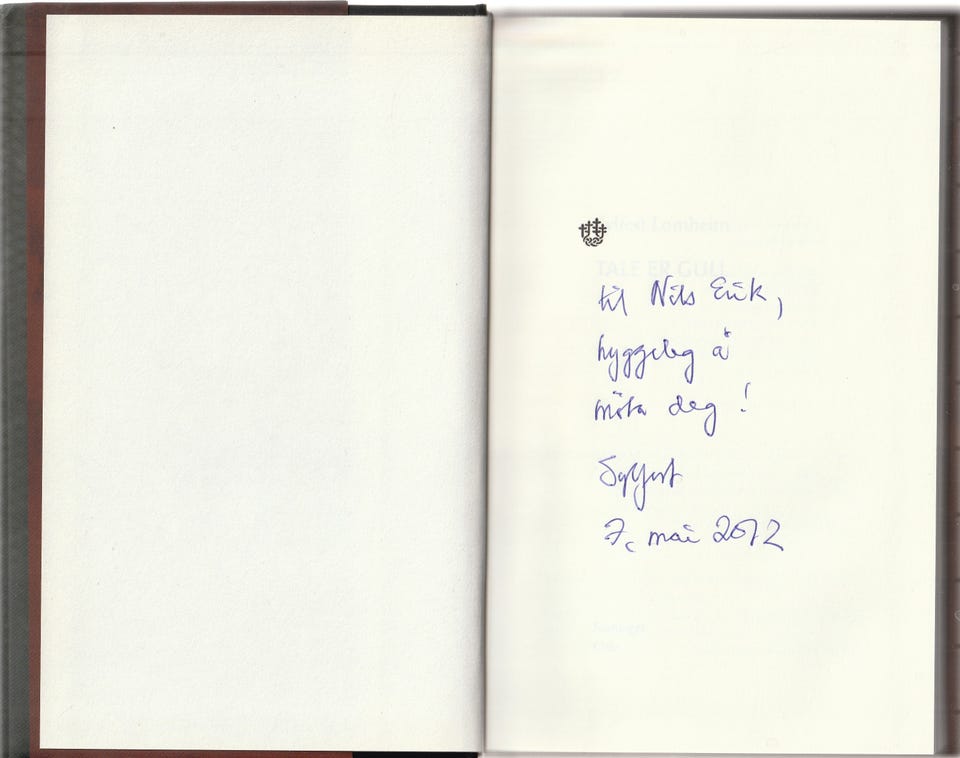 Sylfest Lomheim
TALE ER GULL
til Nils Erik,
hyggeleg å
möta deg !
Sylfest
7. mai 2012
Samlaget
Oslo